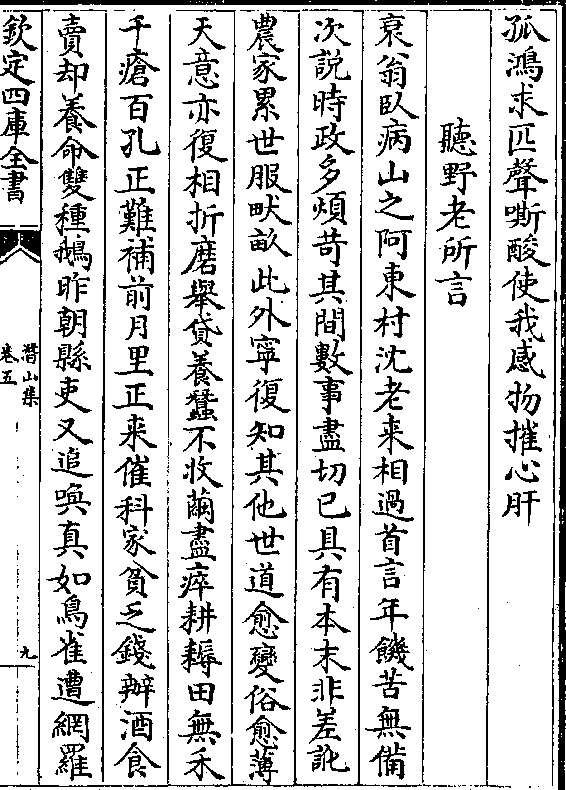 孤鴻求匹聲嘶酸使我感物摧心肝
聽野老所言
衰翁臥病山之阿東村沈老来相過首言年饑苦無備
次説時政多煩苛其間數事盡切已具有本末非差訛
農家累世服畎畝此外寧復知其他世道愈變俗愈薄
天意亦復相折磨舉貸養蠶不收繭盡瘁耕耨田無禾
千瘡百孔正難補前月里正来催科家貧乏錢辦酒食
賣却養命雙種鵝昨朝縣吏又追喚真如鳥雀遭網羅
欽定四庫全書
潛山集
卷五
九